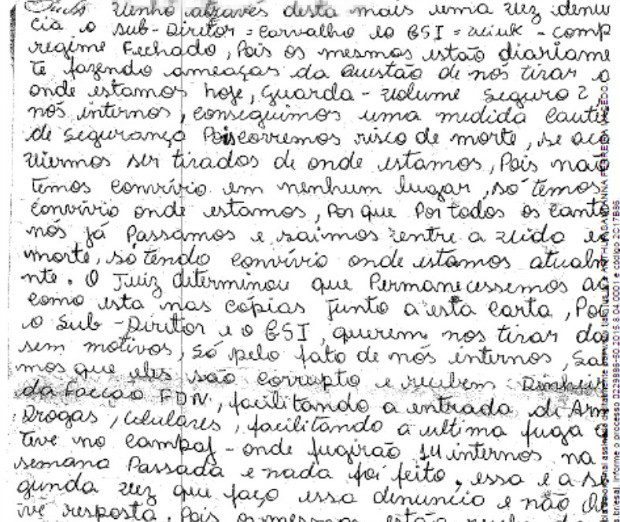 venho através desta mais uma vez denu
cia o sub-Diretor = carvalho e o GSI = - comp
regime Fechado, Pois os mesmos estão diariame
te fazendo ameaças da questão de nos tirar d
onde estamos hoje, guarda-volume seguro 2,
nós internos, conseguimos uma medida Cautel
de segurança Pois corremos risco de morte, se aca
viermos ser tirados de onde estamos, Pois não
temos convívio em nenhum lugar, só temos
convívio onde estamos, Por que Por todos os canto
nos já Passamos e saimos entre a vida e a
morte, só tendo convívio onde estamos atualm
nte. O Juiz determinou que Permanecessemos aq
como esta nas cópias junto a esta carta, Po
o Sub-Diretor e o GSI, querem nos tirar da
sem motivos, só pelo fato de nós internos Sa
mos que eles são corrupto e recebem Dinheir
da Facção FDN, facilitando a entrada de Arm
Drogas, celulares, facilitando a ultima fuga q
teve no compaj-onde fugirão internos na
semana Passada e nada foi feito, essa e a se
gunda vez que faço essa denuncia e não ob
ive resposta, Pois os mesmos estão